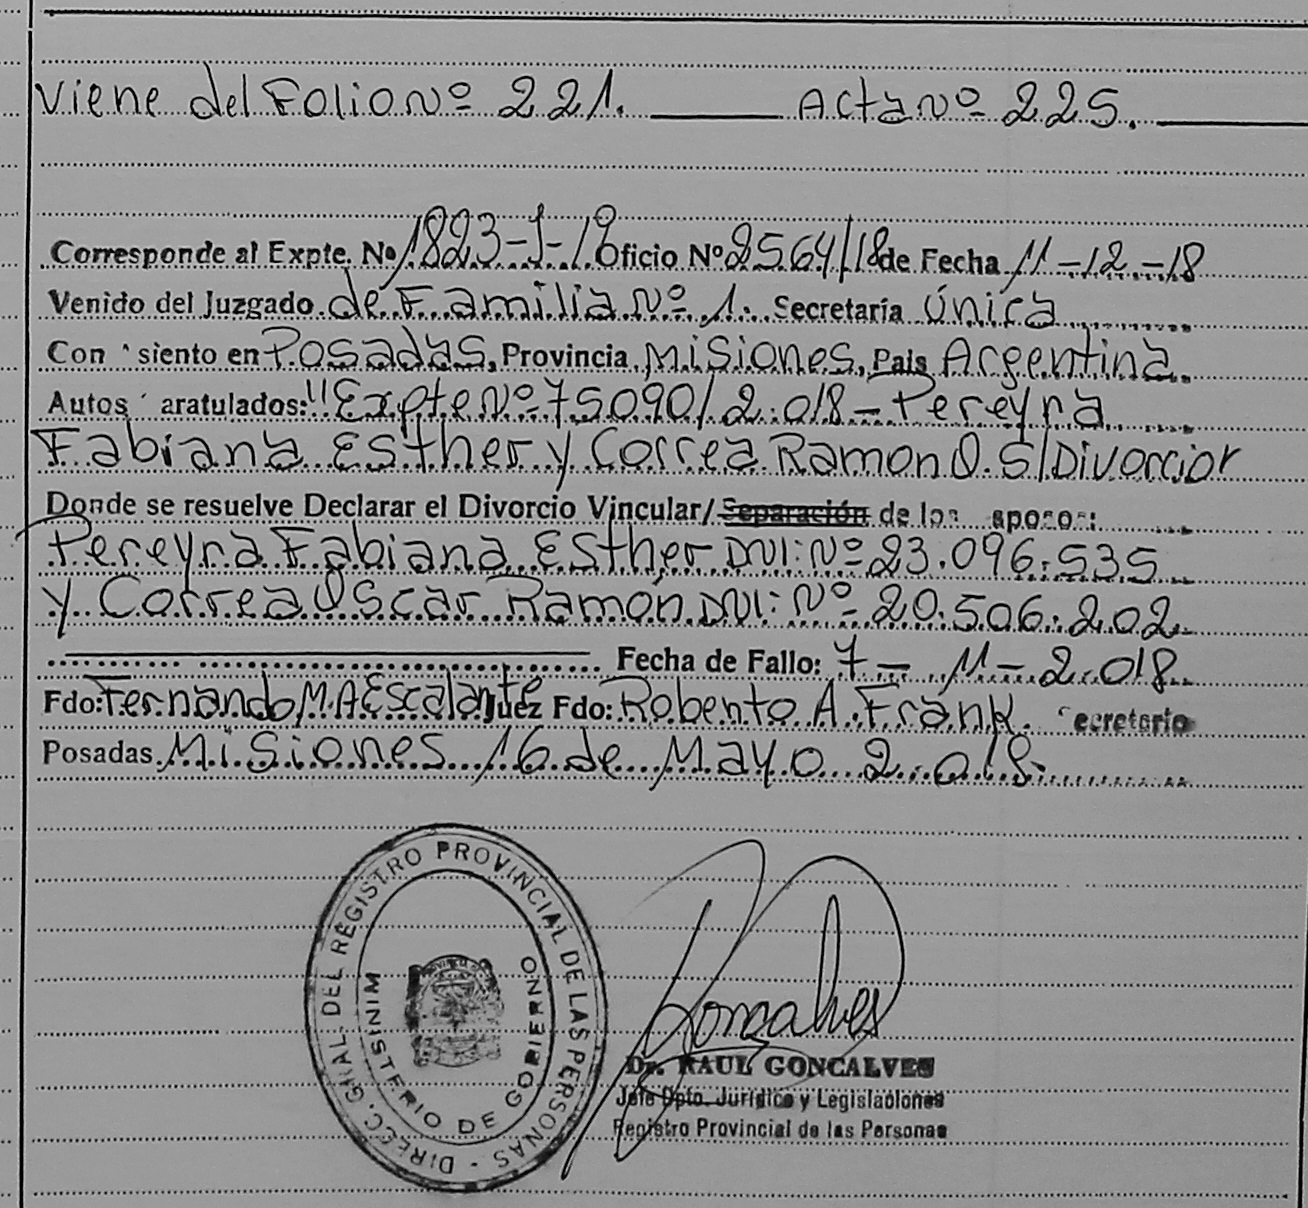 Viene del Folio Nº 221. Acta Nº 225.
Corresponde al Expte. Nº 1823-J-18 Oficio Nº 2564/18 de Fecha 11-12-18
Venido del Juzgado de Familia Nº 1. Secretaría Única
Con siento en Posadas, Provincia Misiones, País Argentina.
Autos aratulados: "Expte Nº 75090/2.018 - Pereyra
Fabiana Esther y Correa Ramon O. S/Divorcior
Donde se resuelve Declarar el Divorcio Vincular/Separación de los sposos:
Pereyra Fabiana Esther DNI: Nº 23.096.535
y Correa Oscar Ramón DNI: Nº 20.506.202
Fecha de Fallo: 7-11-2.018
Fdo: Fernando M.A Escalante Juez Fdo: Roberto A. Frank. Secretario
Posadas Misiones 16 de Mayo 2.018.
DIRECC. GRAL. DEL REGISTRO PROVINCIAL DE LAS PERSONAS -
MINISTERIO DE GOBIERNO
Goncalves
Dr. RAUL GONCALVES
Jefe Dpto. Jurídico y Legislaciones
Registro Provincial de las Personas